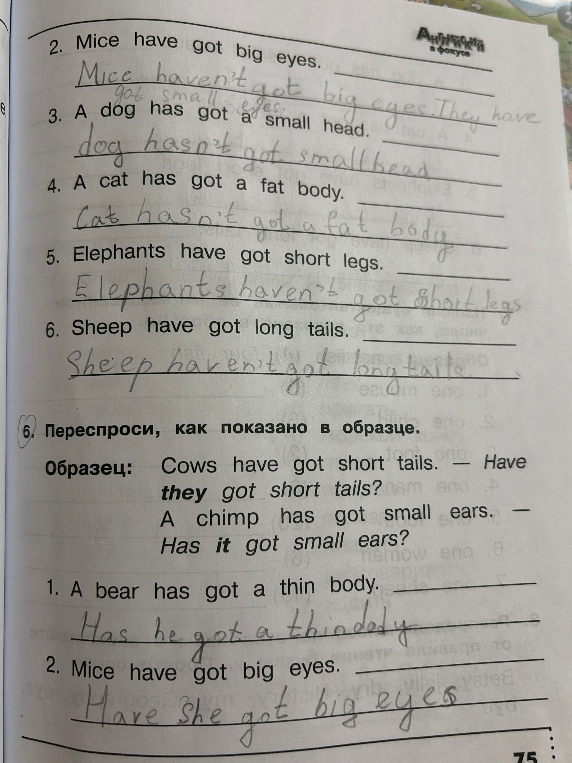 Английский
в фокусе
2. Mice have got big eyes.
Mice haven't got big eyes. They have
got small eyes.
3. A dog has got a small head.
dog hasn't got small head
4. A cat has got a fat body.
Cat hasn't got a fat body
5. Elephants have got short legs.
Elephants haven't got short legs
6. Sheep have got long tails.
Sheep haven't got long tails.
6. Переспроси, как показано в образце.
Образец: Cows have got short tails. — Have
they got short tails?
A chimp has got small ears. —
Has it got small ears?
1. A bear has got a thin body.
Has he got a thin dody
2. Mice have got big eyes.
Have She got big eyes
75